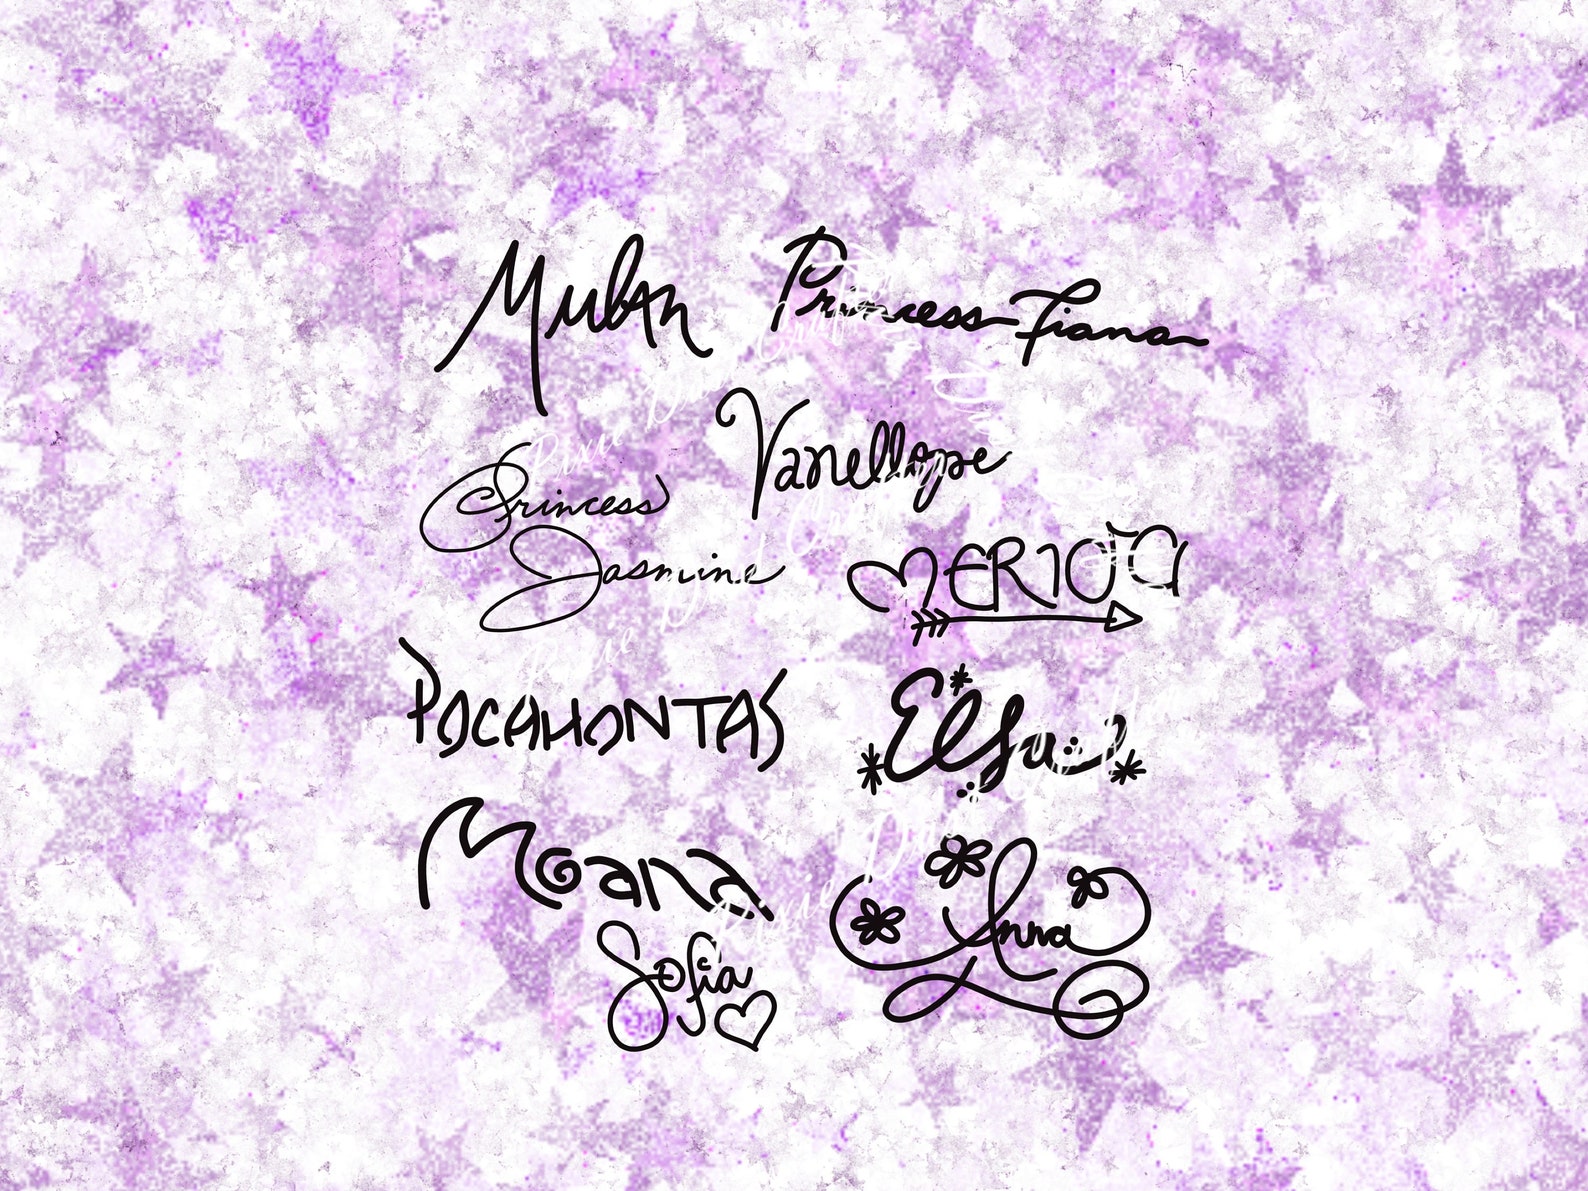 Mulan
Princess Tiana
Vanellope
Princess
Jasmine
MERIDA
POCAHONTAS
Elsa
Moana
Anna
Sofia